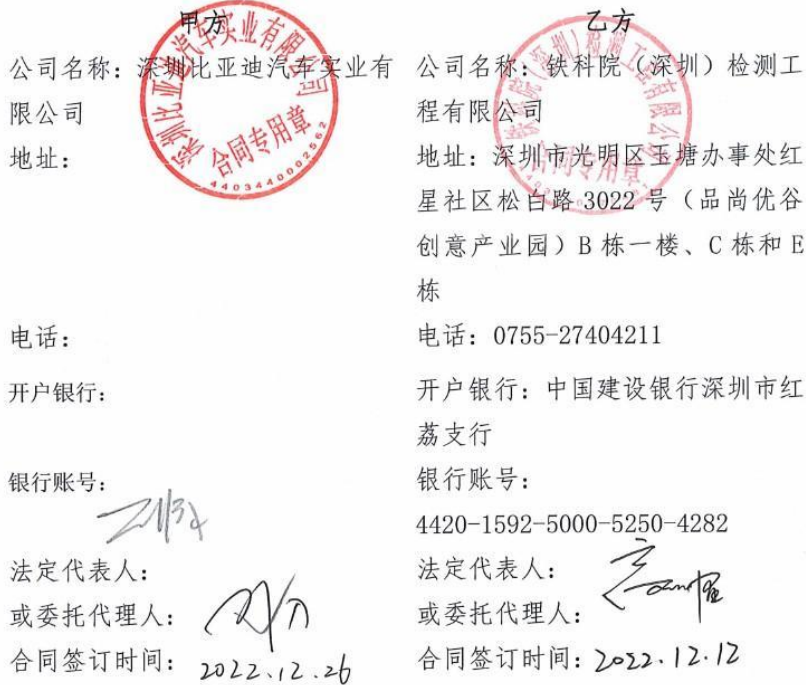 甲方
公司名称：深圳比亚迪汽车实业有
限公司
地址：
电话：
开户银行：
银行账号：
法定代表人：
或委托代理人：
合同签订时间：2022.12.26
深圳比亚迪汽车实业有限公司
合同专用章
4403440002562
乙方
公司名称：铁科院（深圳）检测工
程有限公司
地址：深圳市光明区玉塘办事处红
星社区松白路 3022 号（品尚优谷
创意产业园）B 栋一楼、C 栋和 E
栋
电话：0755-27404211
开户银行：中国建设银行深圳市红
荔支行
银行账号：
4420-1592-5000-5250-4282
法定代表人：
或委托代理人：
合同签订时间：2022.12.12
铁科院（深圳）检测工程有限公司
合同专用章